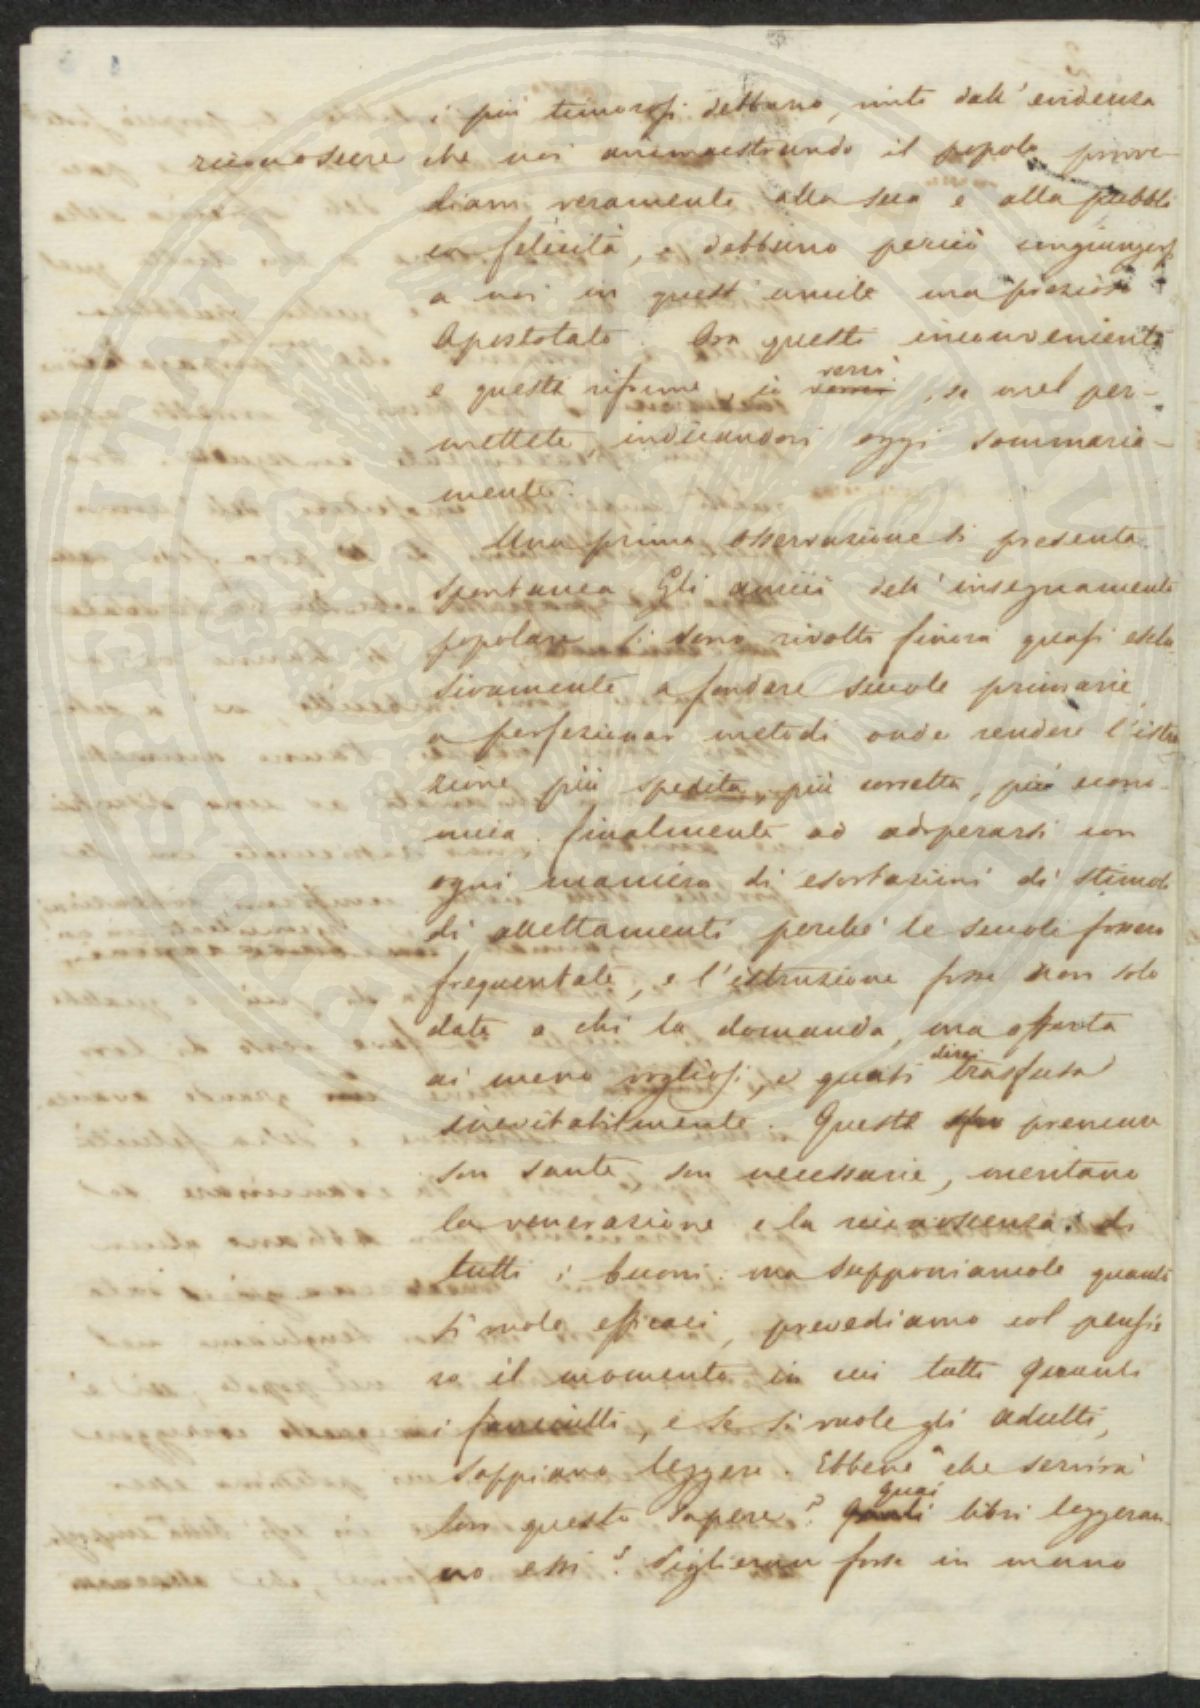 i più timorosi debbano, vinti dall'evidenza
riconoscere che noi ammaestrando il popolo provve-
diam veramente alla sua e alla pubbli
ca felicità, e debbano perciò congiungersi
a noi in quest'umile ma prezioso
Apostolato. Ora questi inconvenienti
e queste riforme, io verrò, se mel per-
mettete, indicandovi oggi sommaria-
mente.
Una prima osservazione si presenta
spontanea. Gli amici dell'insegnamento
popolare si sono rivolti finora quasi esclu
sivamente a fondare scuole primarie,
a perfezionar metodi onde rendere l'istru
zione più spedita, più corretta, più econo-
mica. finalmente ad adoperarsi con
ogni maniera di esortazioni di stimoli
di allettamenti perché le scuole fossero
frequentate, e l'istruzione fosse non solo
data a chi la domanda, ma offerta
ai meno vogliosi, e quasi direi trasfusa
inevitabilmente. Queste premure
son sante, son necessarie, meritano
la venerazione e la riconoscenza di
tutti i buoni. ma supponiamole quanto
si vuole efficaci, prevediamo col pensie
ro il momento in cui tutti quanti
i fanciulli, e se si vuole gli adulti,
sappiano leggere. Ebbene a che servirà
lor questo sapere? quai libri leggeran-
no essi? Piglieran forse in mano